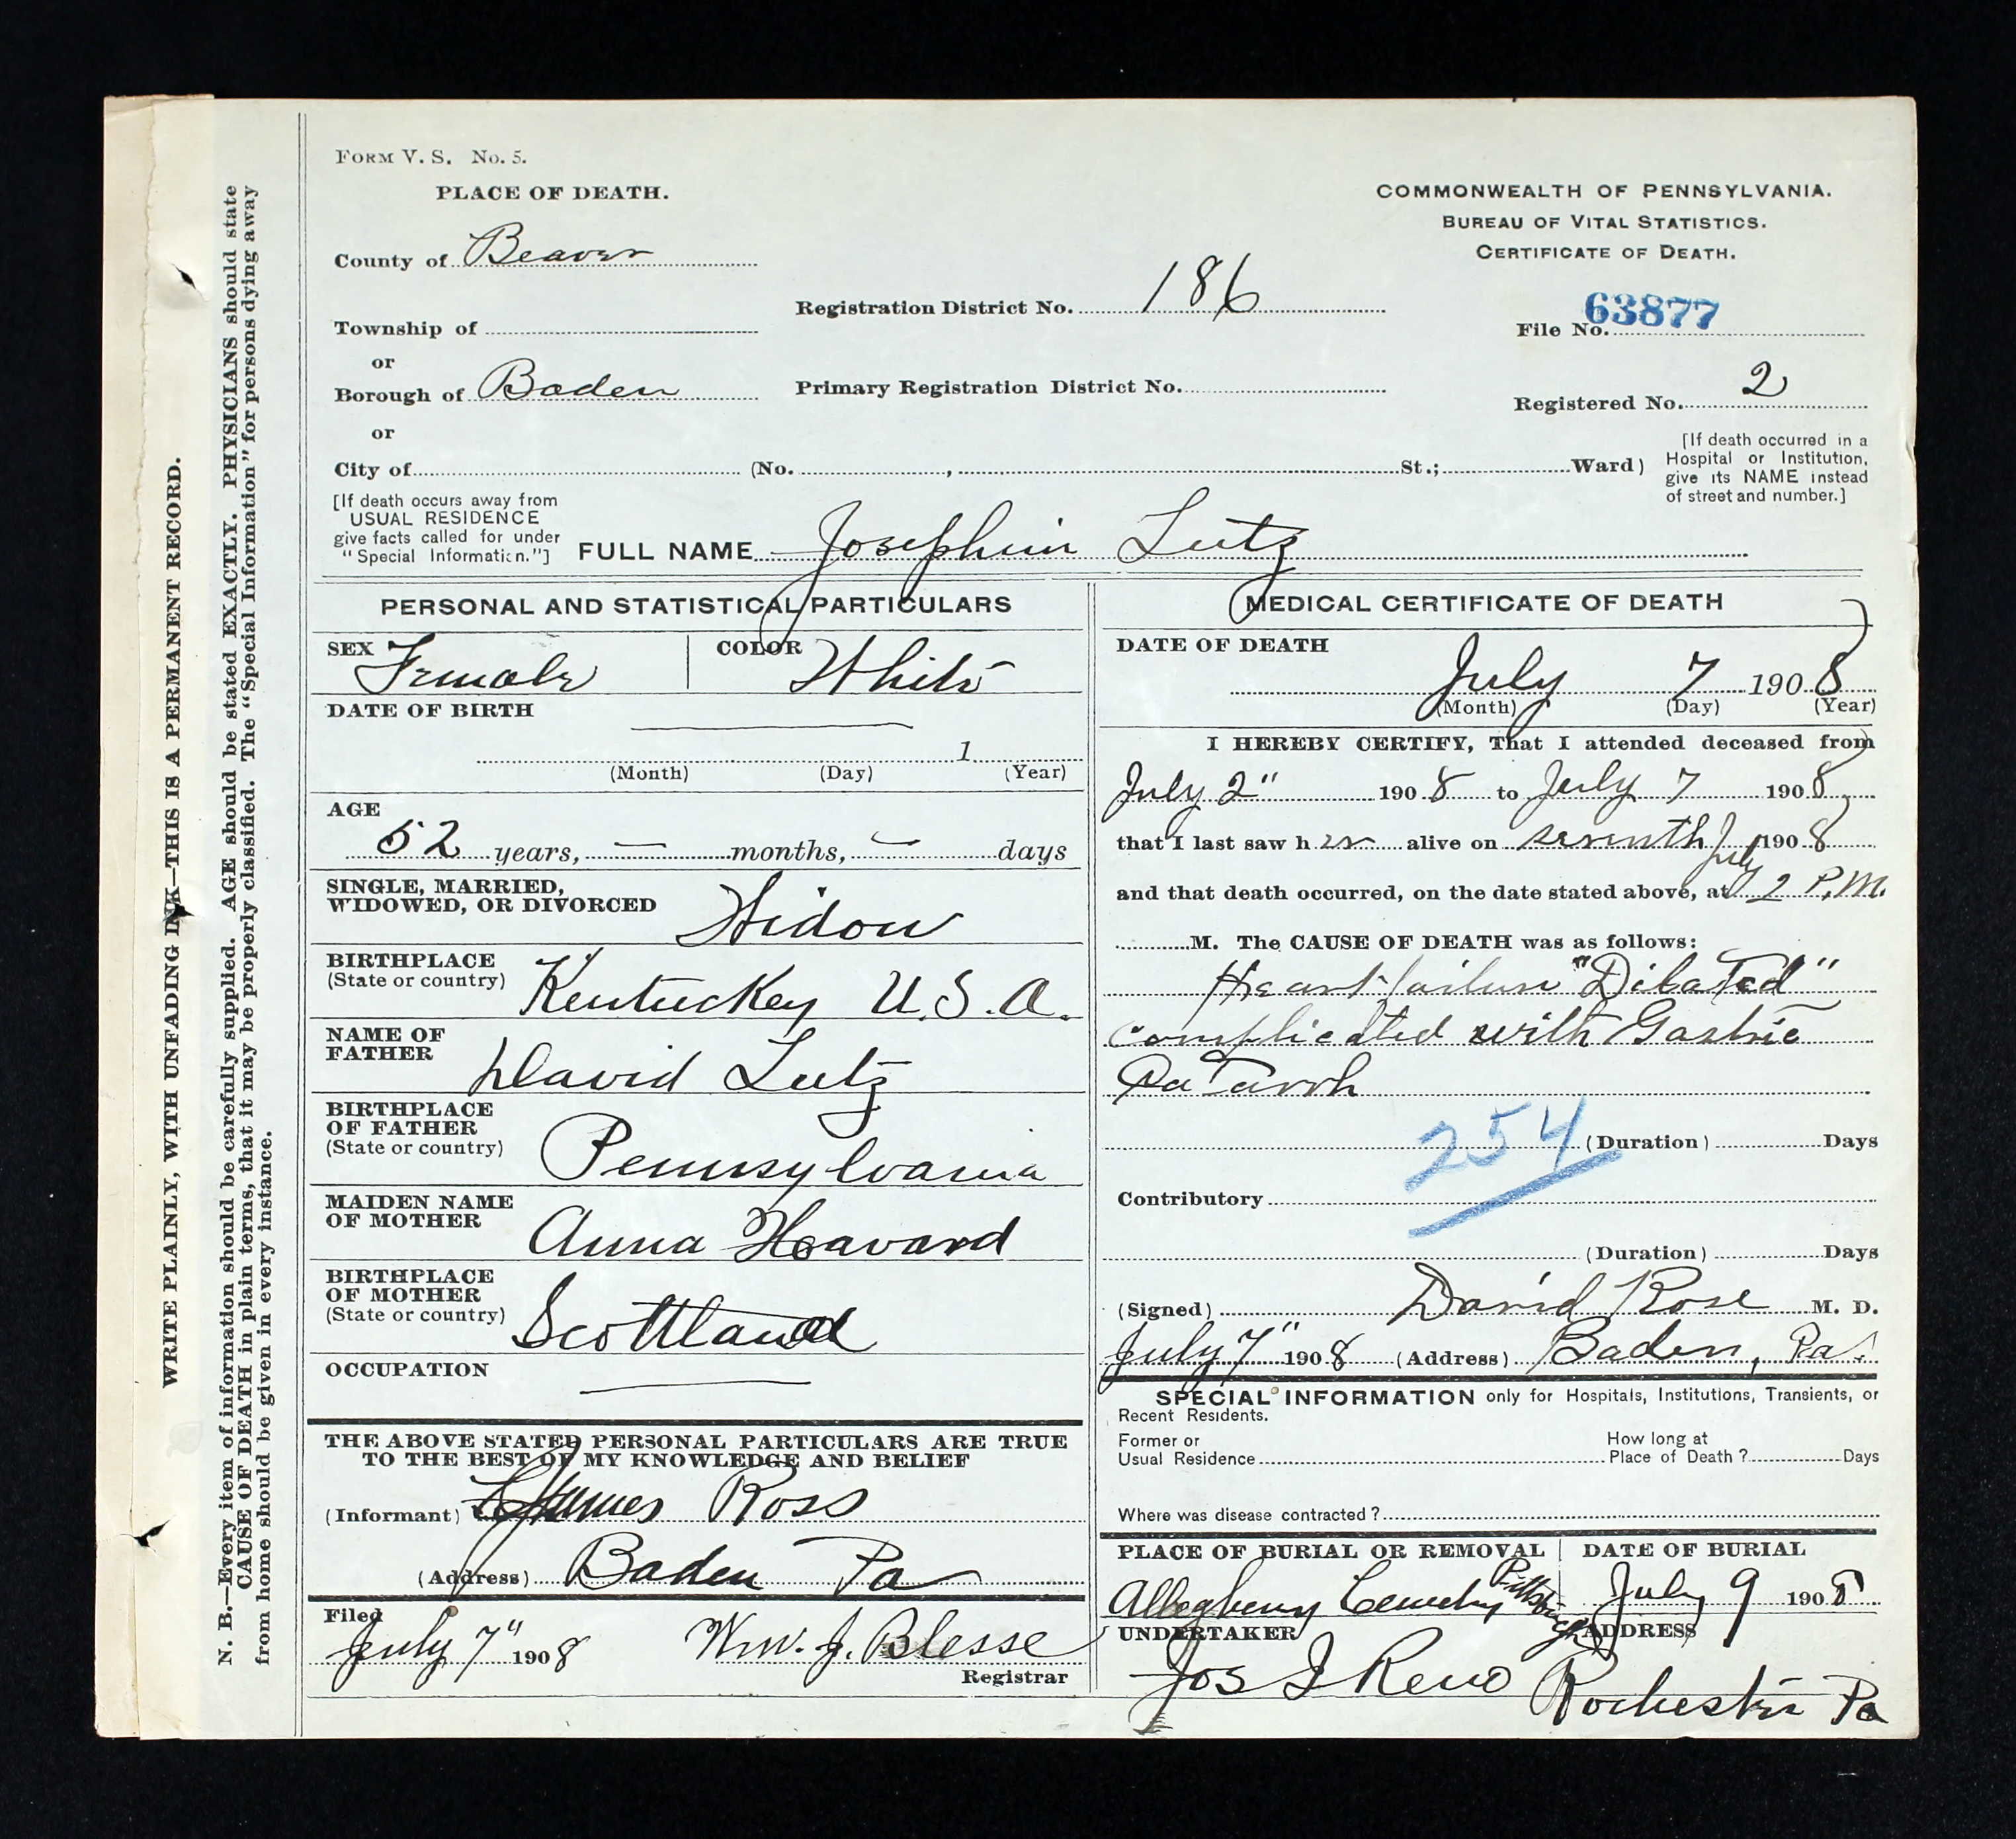 FORM V. S. No. 5.
PLACE OF DEATH.
County of Beaver
Township of
or
Borough of Baden
or
City of (No. , St.; Ward)
Registration District No. 186
Primary Registration District No.
COMMONWEALTH OF PENNSYLVANIA.
BUREAU OF VITAL STATISTICS.
CERTIFICATE OF DEATH.
File No. 63877
Registered No. 2
[If death occurred in a
Hospital or Institution,
give its NAME instead
of street and number.]
[If death occurs away from
USUAL RESIDENCE
give facts called for under
"Special Information."]
FULL NAME Josephin Lutz
PERSONAL AND STATISTICAL PARTICULARS
SEX Female
COLOR White
DATE OF BIRTH
1
(Month) (Day) (Year)
AGE
52 years, — months, — days
SINGLE, MARRIED,
WIDOWED, OR DIVORCED Widow
BIRTHPLACE
(State or country) Kentuckey U.S.A.
NAME OF
FATHER David Lutz
BIRTHPLACE
OF FATHER
(State or country) Pennsylvania
MAIDEN NAME
OF MOTHER Anna Howard
BIRTHPLACE
OF MOTHER
(State or country) Scottland
OCCUPATION
THE ABOVE STATED PERSONAL PARTICULARS ARE TRUE
TO THE BEST OF MY KNOWLEDGE AND BELIEF
(Informant) James Ross
(Address) Baden Pa
Filed
July 7" 1908 Wm. J. Blesse
Registrar
MEDICAL CERTIFICATE OF DEATH
DATE OF DEATH
July 7 1908
(Month) (Day) (Year)
I HEREBY CERTIFY, That I attended deceased from
July 2" 1908 to July 7 1908,
that I last saw her alive on seventh July 1908,
and that death occurred, on the date stated above, at 2 P.M.
M. The CAUSE OF DEATH was as follows:
Heart failure "Dilated"
complicated with Gastric
Catarrh
254
(Duration) Days
Contributory
(Duration) Days
(Signed) David Rose M. D.
July 7" 1908 (Address) Baden, Pa.
SPECIAL INFORMATION only for Hospitals, Institutions, Transients, or
Recent Residents.
Former or
Usual Residence
How long at
Place of Death ? Days
Where was disease contracted ?
PLACE OF BURIAL OR REMOVAL
Allegheny Cemetery Pittsburgh
DATE OF BURIAL
July 9 1908
UNDERTAKER
Jos I Reno
ADDRESS
Rochester Pa
WRITE PLAINLY, WITH UNFADING INK—THIS IS A PERMANENT RECORD.
N. B.—Every item of information should be carefully supplied. AGE should be stated EXACTLY. PHYSICIANS should state
CAUSE OF DEATH in plain terms, that it may be properly classified. The "Special Information" for persons dying away
from home should be given in every instance.